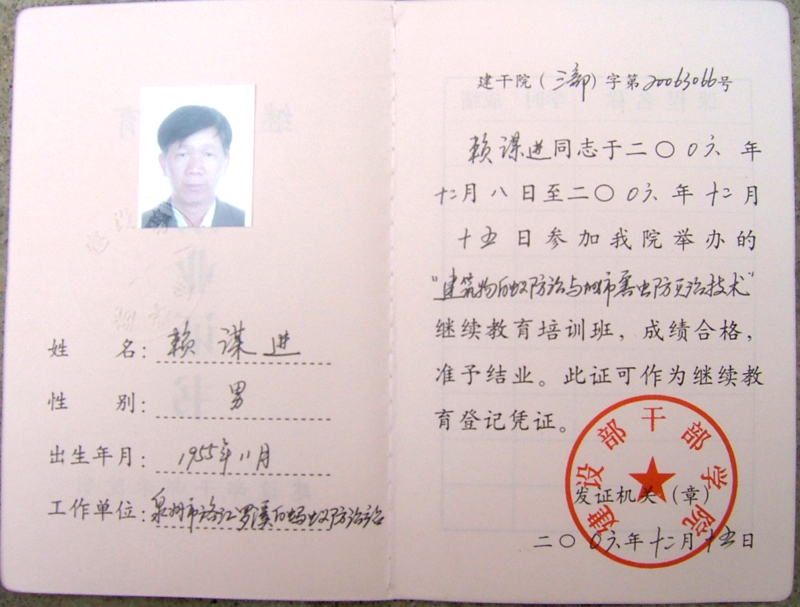 姓 名：赖谋进
性 别：男
出生年月：1955年11月
工作单位：泉州市洛江罗溪白蚂蚁防治站
建干院（三部）字第20063066号
赖谋进同志于二〇〇六年
十二月八日至二〇〇六年十二月
十五日参加我院举办的
“建筑物白蚁防治与城市害虫防治技术”
继续教育培训班，成绩合格，
准予结业。此证可作为继续教
育登记凭证。
建设部干部学院
发证机关（章）
二〇〇六年十二月十五日